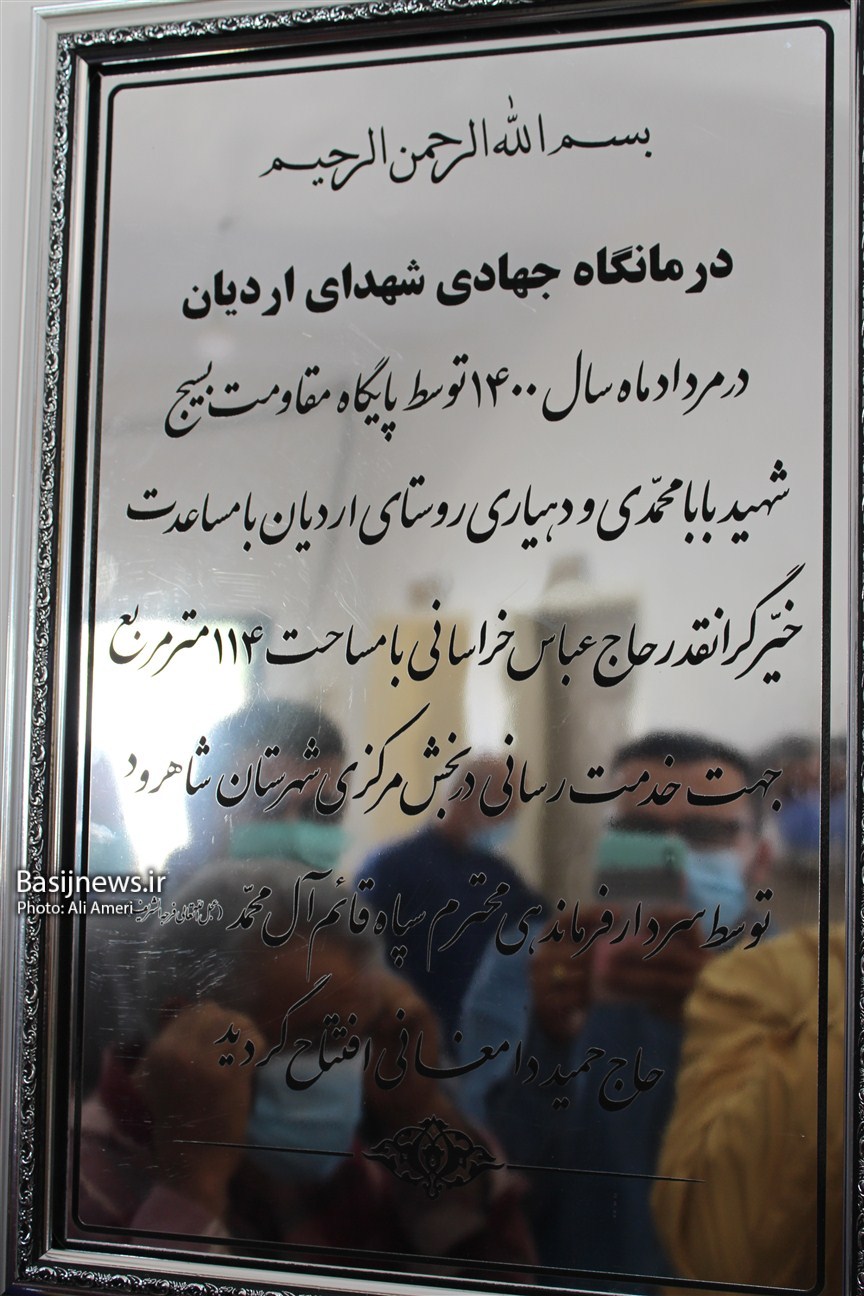 بسم الله الرحمن الرحیم
درمانگاه جهادی شهدای اردیان
در مرداد ماه سال ۱۴۰۰ توسط پایگاه مقاومت بسیج
شهید بابامحمّدی و دهیاری روستای اردیان با مساعدت
خیّر گرانقدر حاج عباس خراسانی با مساحت ۱۱۴ متر مربع
جهت خدمت رسانی در بخش مرکزی شهرستان شاهرود
توسط سردار فرماندهی محترم سپاه قائم آل محمّد (عجل الله تعالی فرجه الشریف)
حاج حمید دامغانی افتتاح گردید
Basijnews.ir
Photo: Ali Ameri